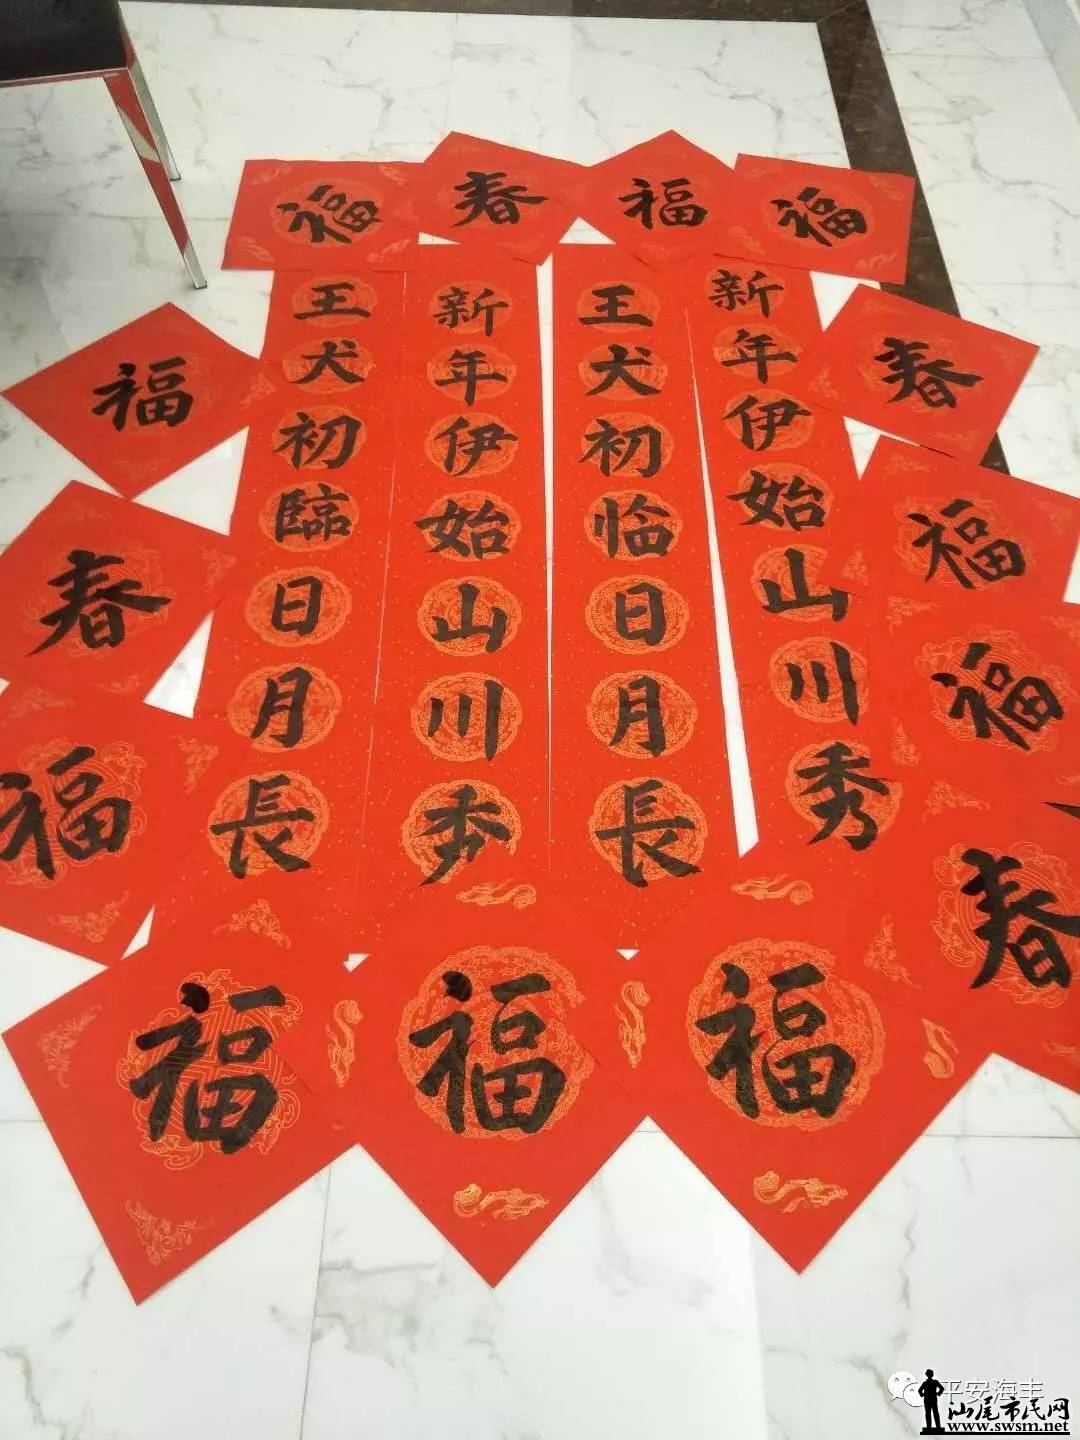 福
春
福
福
王犬初臨日月長
新年伊始山川秀
王犬初临日月長
新年伊始山川秀
福
春
春
福
福
福
福
春
福
福
福
平安海丰
汕尾市民网
www.swsm.net